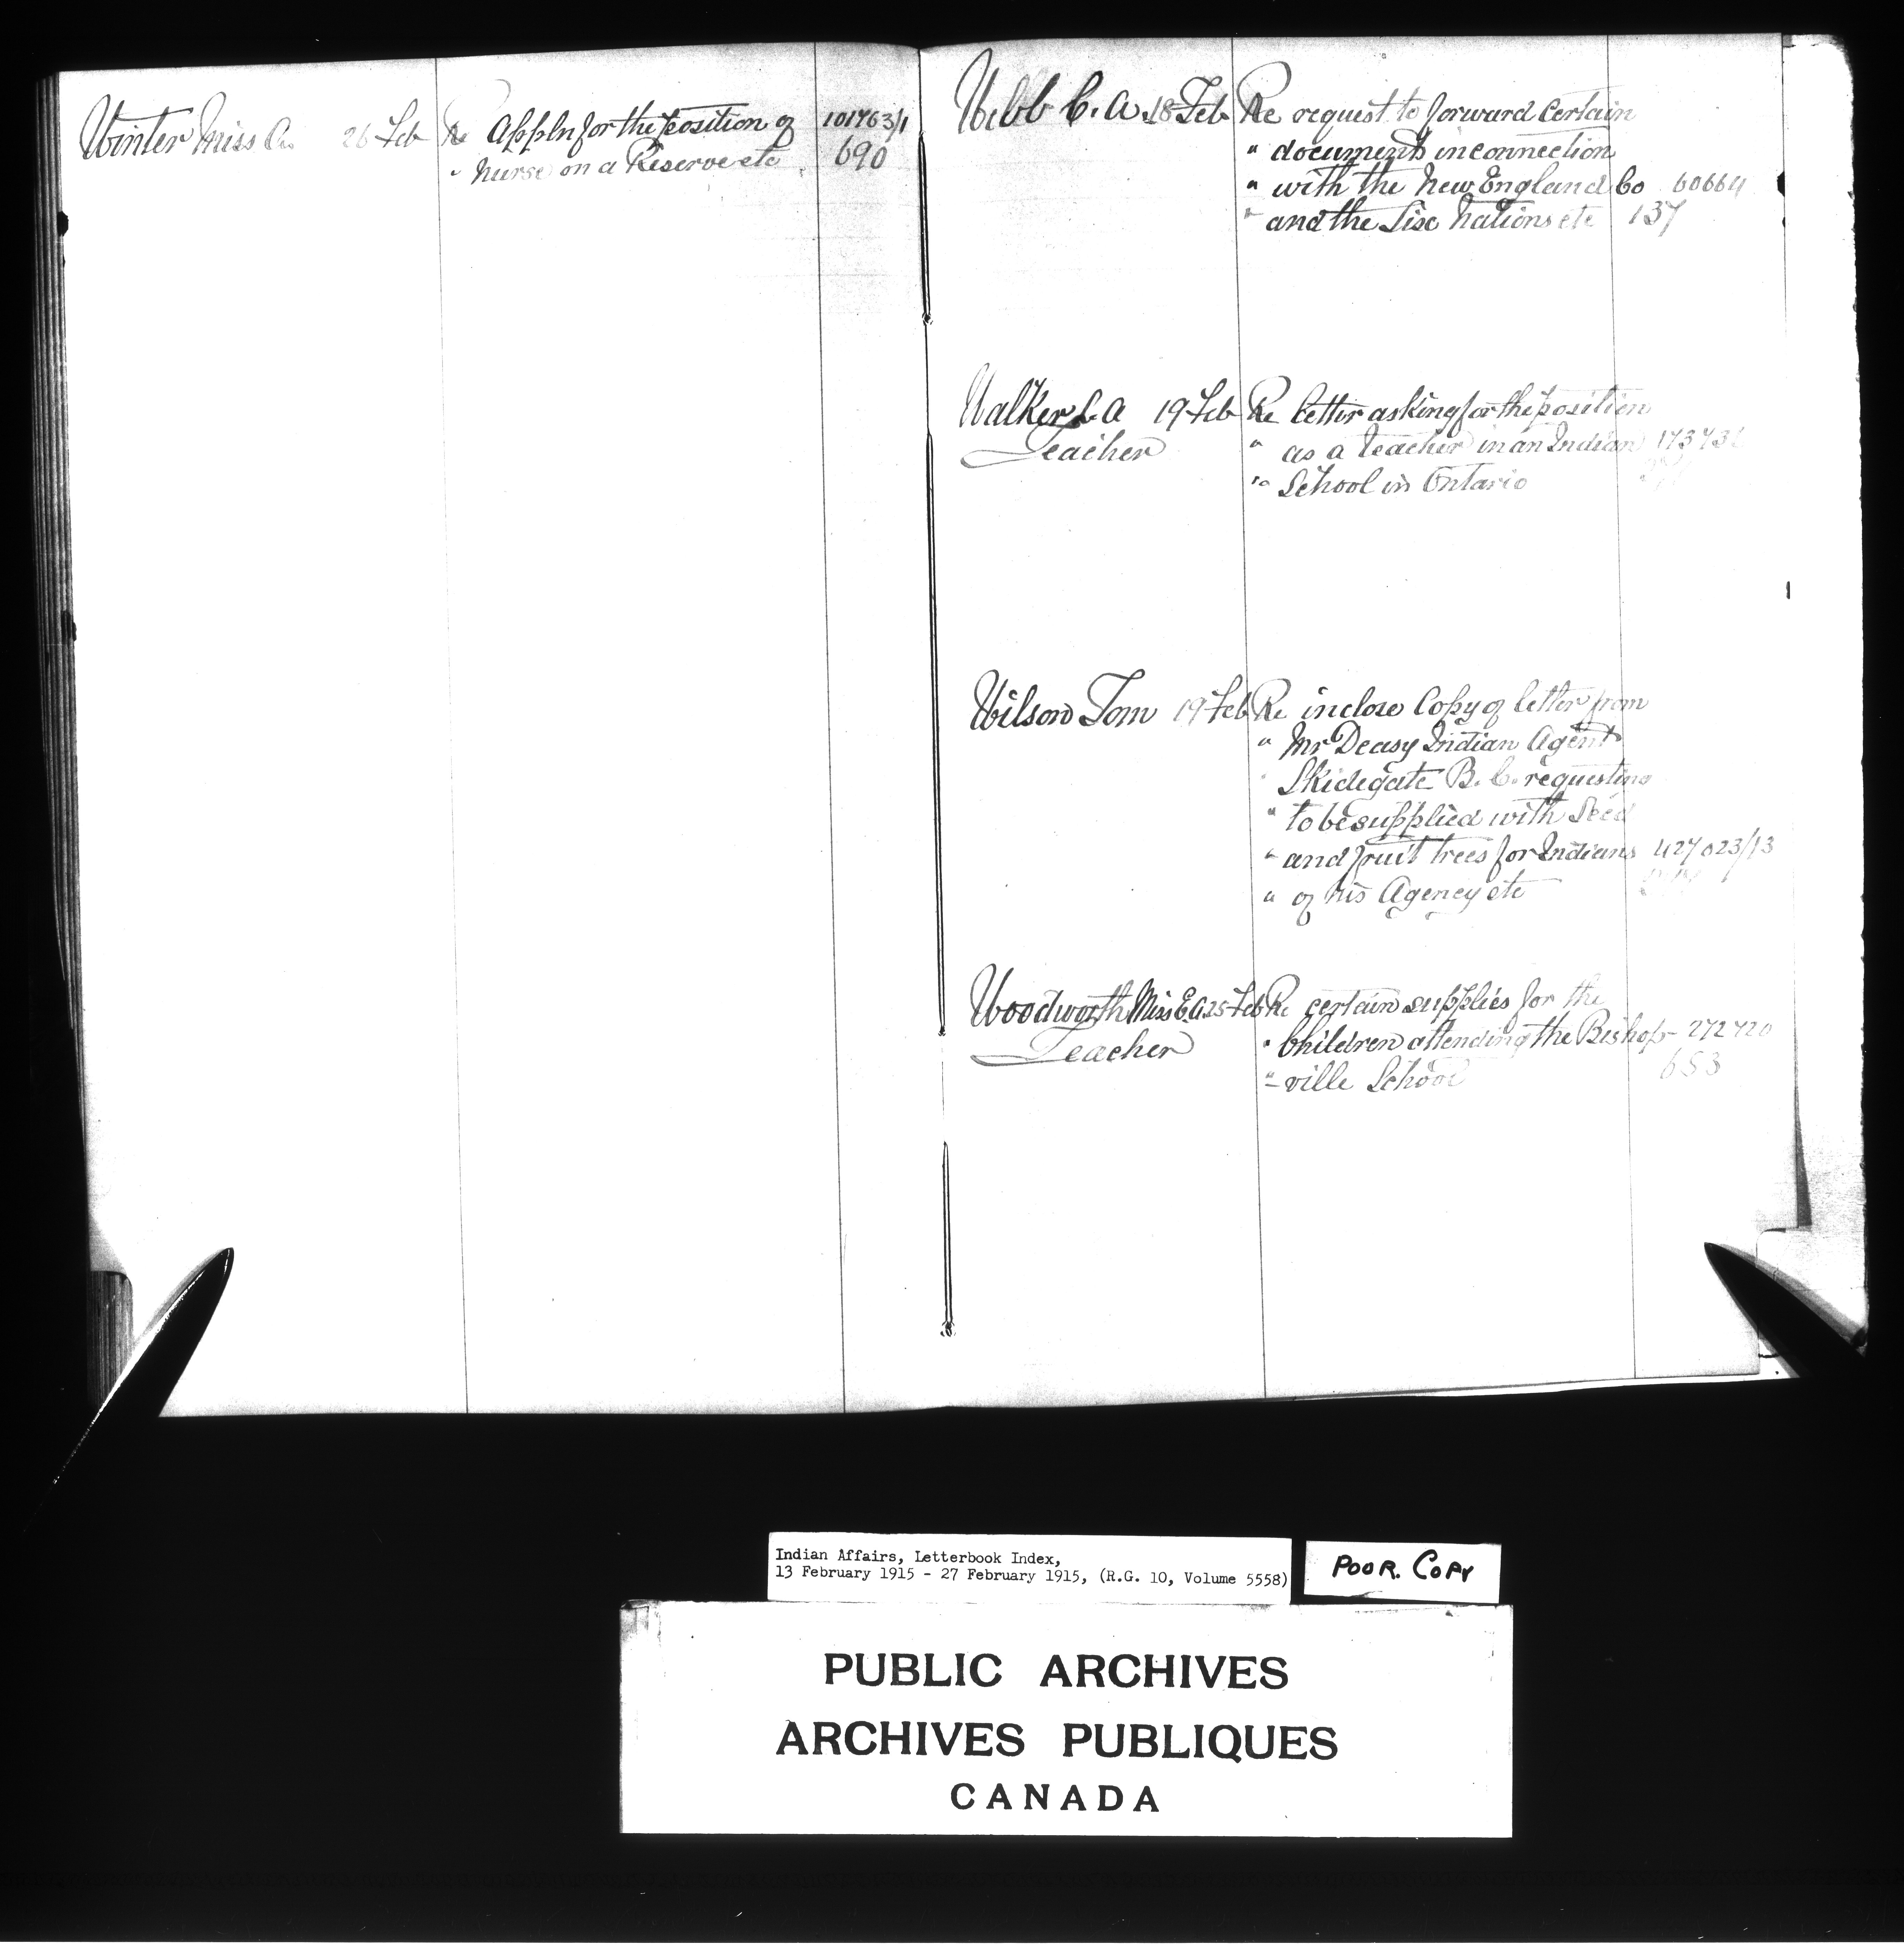 Winter Miss C. 26 Feb Re Appln for the position of 101763/1
" Nurse on a Reserve etc 690
Webb C. A. 18 Feb Re request to forward certain
" documents in connection
" with the New England Co 60664
" and the Six Nations etc 137
Walker L A 19 Feb Re letter asking for the position
Teacher " as a teacher in an Indian
" School in Ontario
Wilson Tom 19 Feb Re inclose Copy of letter from
" Mr Deasy Indian Agent
" Skidegate B. C. requesting
" to be supplied with Seed
" and fruit trees for Indians 427023/13
" of his Agency etc
Woodworth Miss E. A. 25 Feb Re certain supplies for the
Teacher " Children attending the Bishop- 272720
" -ville School 653
Indian Affairs, Letterbook Index,
13 February 1915 - 27 February 1915, (R.G. 10, Volume 5558)
POOR. COPY
PUBLIC ARCHIVES
ARCHIVES PUBLIQUES
CANADA